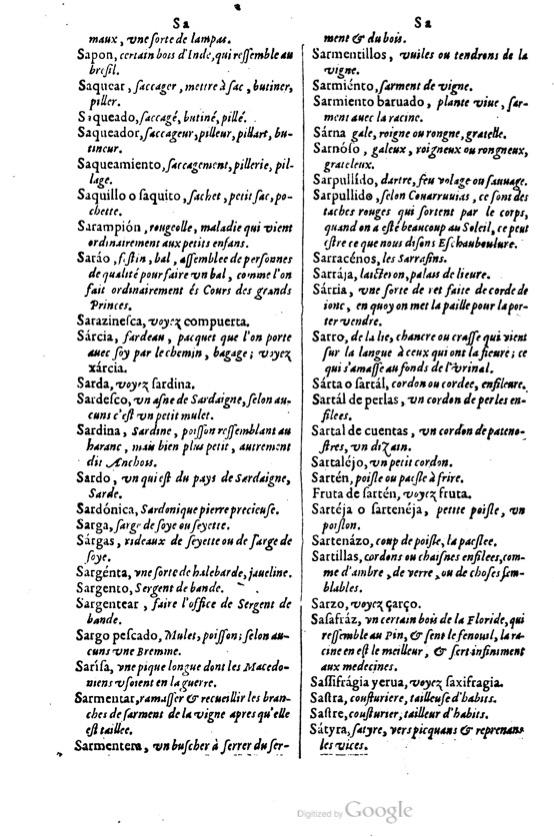 Sa
maux, vne sorte de lampas.
Sapon, certain bois d'Inde, qui ressemble au
bresil.
Saquear, saccager, mettre à sac, butiner,
piller.
Saqueado, saccagé, butiné, pillé.
Saqueador, saccageur, pilleur, pillart, bu-
tineur.
Saqueamiento, saccagement, pillerie, pil-
lage.
Saquillo o saquito, sachet, petit sac, po-
chette.
Sarampión, rougeolle, maladie qui vient
ordinairement aux petits enfans.
Saráo, festin, bal, assemblee de personnes
de qualité pour faire vn bal, comme l'on
fait ordinairement és Cours des grands
Princes.
Sarazinesca, voyez compuerta.
Sárcia, fardeau, pacquet que l'on porte
auec soy par le chemin, bagage; voyez
xárcia.
Sarda, voyez sardina.
Sardesco, vn asne de Sardaigne, selon au-
cuns c'est vn petit mulet.
Sardina, Sardine, poisson ressemblant au
haranc, mais bien plus petit, autrement
dit Anchois.
Sardo, vn qui est du pays de Sardaigne,
Sarde.
Sardónica, Sardonique pierre precieuse.
Sarga, sarge de soye ou seyette.
Sárgas, rideaux de seyette ou de sarge de
soye.
Sargénta, vne sorte de halebarde, jaueline.
Sargento, Sergent de bande.
Sargentear, faire l'office de Sergent de
bande.
Sargo pescado, Mulet, poisson; selon au-
cuns vne Bremme.
Sarisa, vne pique longue dont les Macedo-
niens vsoient en la guerre.
Sarmentar, ramasser & recueillir les bran-
ches de sarment de la vigne apres qu'elle
est taillee.
Sarmentera, vn buscher à serrer du ser-
Sa
ment & du bois.
Sarmentillos, vuiles ou tendrons de la
vigne.
Sarmiénto, sarment de vigne.
Sarmiento baruado, plante viue, sar-
ment auec la racine.
Sárna gale, roigne ou rongne, gratelle.
Sarnóso, galeux, roigneux ou rongneux,
grateleux.
Sarpullído, dartre, feu volage ou sauuage.
Sarpullido, selon Couarruuias, ce sont des
taches rouges qui sortent par le corps,
quand on a esté beaucoup au Soleil, ce peut
estre ce que nous disons Eschauboulure.
Sarracénos, les Sarrasins.
Sartája, laicteron, palais de lieure.
Sárcia, vne sorte de ret faite de corde de
ionc, en quoy on met la paille pour la por-
ter vendre.
Sarro, de la lie, chancre ou crasse qui vient
sur la langue à ceux qui ont la fieure; ce
qui s'amasse au fonds de l'Vrinal.
Sárta o sartál, cordon ou cordee, enfileure.
Sartál de perlas, vn cordon de perles en-
filees.
Sartal de cuentas, vn cordon de pateno-
stres, vn dizain.
Sartaléjo, vn petit cordon.
Sartén, poisle ou paesle à frire.
Fruta de sartén, voyez fruta.
Sartéja o sartenéja, petite poisle, vn
poislon.
Sartenázo, coup de poisle, la paeslee.
Sartillas, cordons ou chaisnes enfilees, com-
me d'ambre, de verre, ou de choses sem-
blables.
Sarzo, voyez çarço.
Sasafráz, vn certain bois de la Floride, qui
ressemble au Pin, & sent le fenouil, la ra-
cine en est le meilleur, & sert infiniment
aux medecines.
Sassifrágia yerua, voyez saxifragia.
Sastra, cousturiere, tailleuse d'habits.
Sastre, cousturier, tailleur d'habits.
Sátyra, satyre, vers picquans & reprenans
les vices.
Digitized by Google